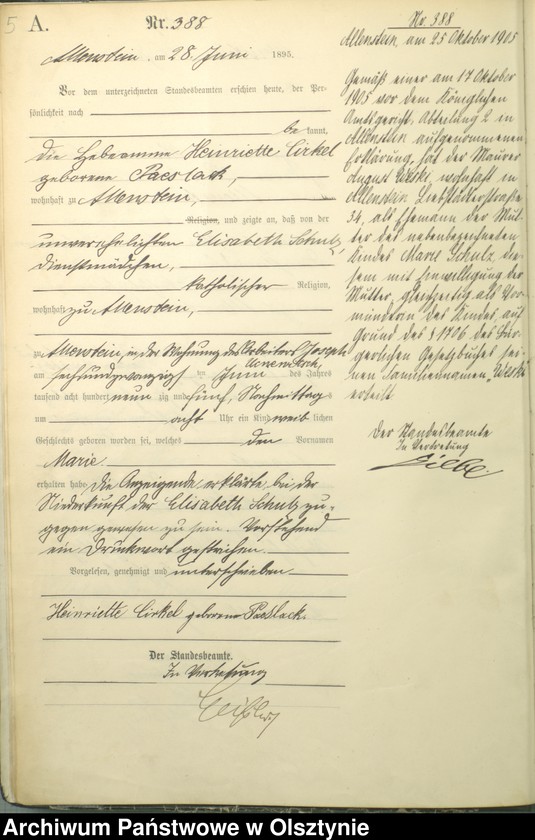 5
A.
Nr. 388
Allenstein, am 28. Juni 1895.
Vor dem unterzeichneten Standesbeamten erschien heute, der Per-
sönlichkeit nach
be kannt,
die Hebeamme Heinriette Cirkel
geborene Paeslack,
wohnhaft zu Allenstein,
Religion, und zeigte an, daß von der
unverehelichten Elisabeth Schulz,
Dienstmädchen,
katholischer Religion,
wohnhaft zu Allenstein,
zu Allenstein, in der Wohnung des Arbeiters Joseph
am sechsundzwanzigsten Juni des Jahres
tausend acht hundert neun zig und fünf, Nachmittags
um acht Uhr ein Kind weib lichen
Geschlechts geboren worden sei, welches den Vornamen
Marie
erhalten habe. Die Anzeigende erklärte, bei der
Niederkunft der Elisabeth Schulz zu-
gegen gewesen zu sein. Vorstehend
ein Druckwort gestrichen.
Vorgelesen, genehmigt und unterschrieben
Heinriette Cirkel geborene Paeslack.
Der Standesbeamte.
In Vertretung
Nr. 388
Allenstein, am 25 Oktober 1905
Gemäß einer am 17 Oktober
1905 vor dem Königlichen
Amtsgericht, Abteilung 2 in
Allenstein aufgenommenen
Erklärung, hat der Maurer
August, wohnhaft in
Allenstein Liebstädterstraße
34, als Ehemann der Mut-
ter des nebenbezeichneten
Kindes Marie Schulz, die-
sem mit Einwilligung der
Mutter, gleichzeitig als Vor-
münderin des Kindes, auf
Grund des § 1706 des Bür-
gerlichen Gesetzbuches sei-
nen Familiennamen
erteilt
Der Standesbeamte
In Vertretung
Archiwum Państwowe w Olsztynie